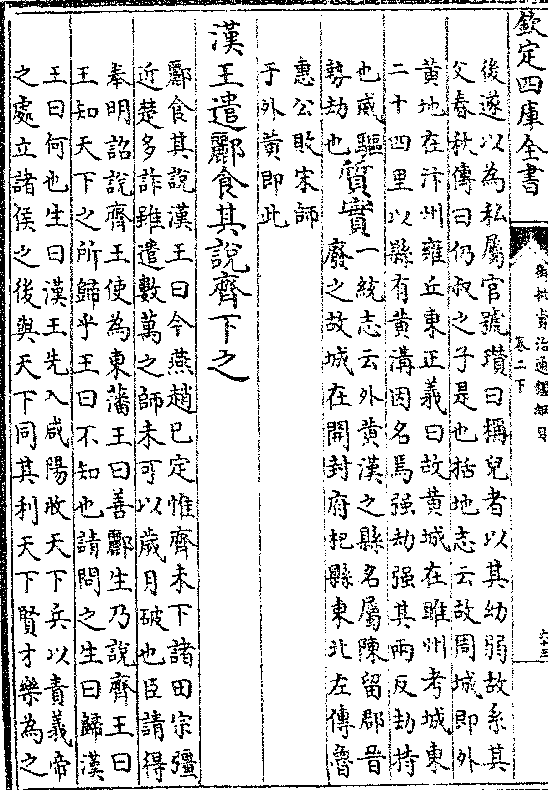 欽定四庫全書
御批資治通鑑綱目
卷二下
後遂以為私屬官號瓚曰稱兒者以其幼弱故系其
父春秋傳曰仍叔之子是也括地志云故周城即外
黄地在汴州雍丘東正義曰故黄城在雎州考城東
二十四里以縣有黄溝因名焉强劫强其兩反劫持
也威驅
勢劫也
質實
一統志云外黄漢之縣名屬陳留郡晉
廢之故城在開封府杞縣東北左傳魯
惠公敗宋師
于外黄即此
漢王遣酈食其說齊下之
酈食其說漢王曰今燕趙已定惟齊未下諸田宗彊
近楚多詐雖遣數萬之師未可以歲月破也臣請得
奉明詔說齊王使為東藩王曰善酈生乃說齊王曰
王知天下之所歸乎王曰不知也請問之生曰歸漢
王曰何也生曰漢王先入咸陽收天下兵以責義帝
之處立諸侯之後與天下同其利天下賢才樂為之